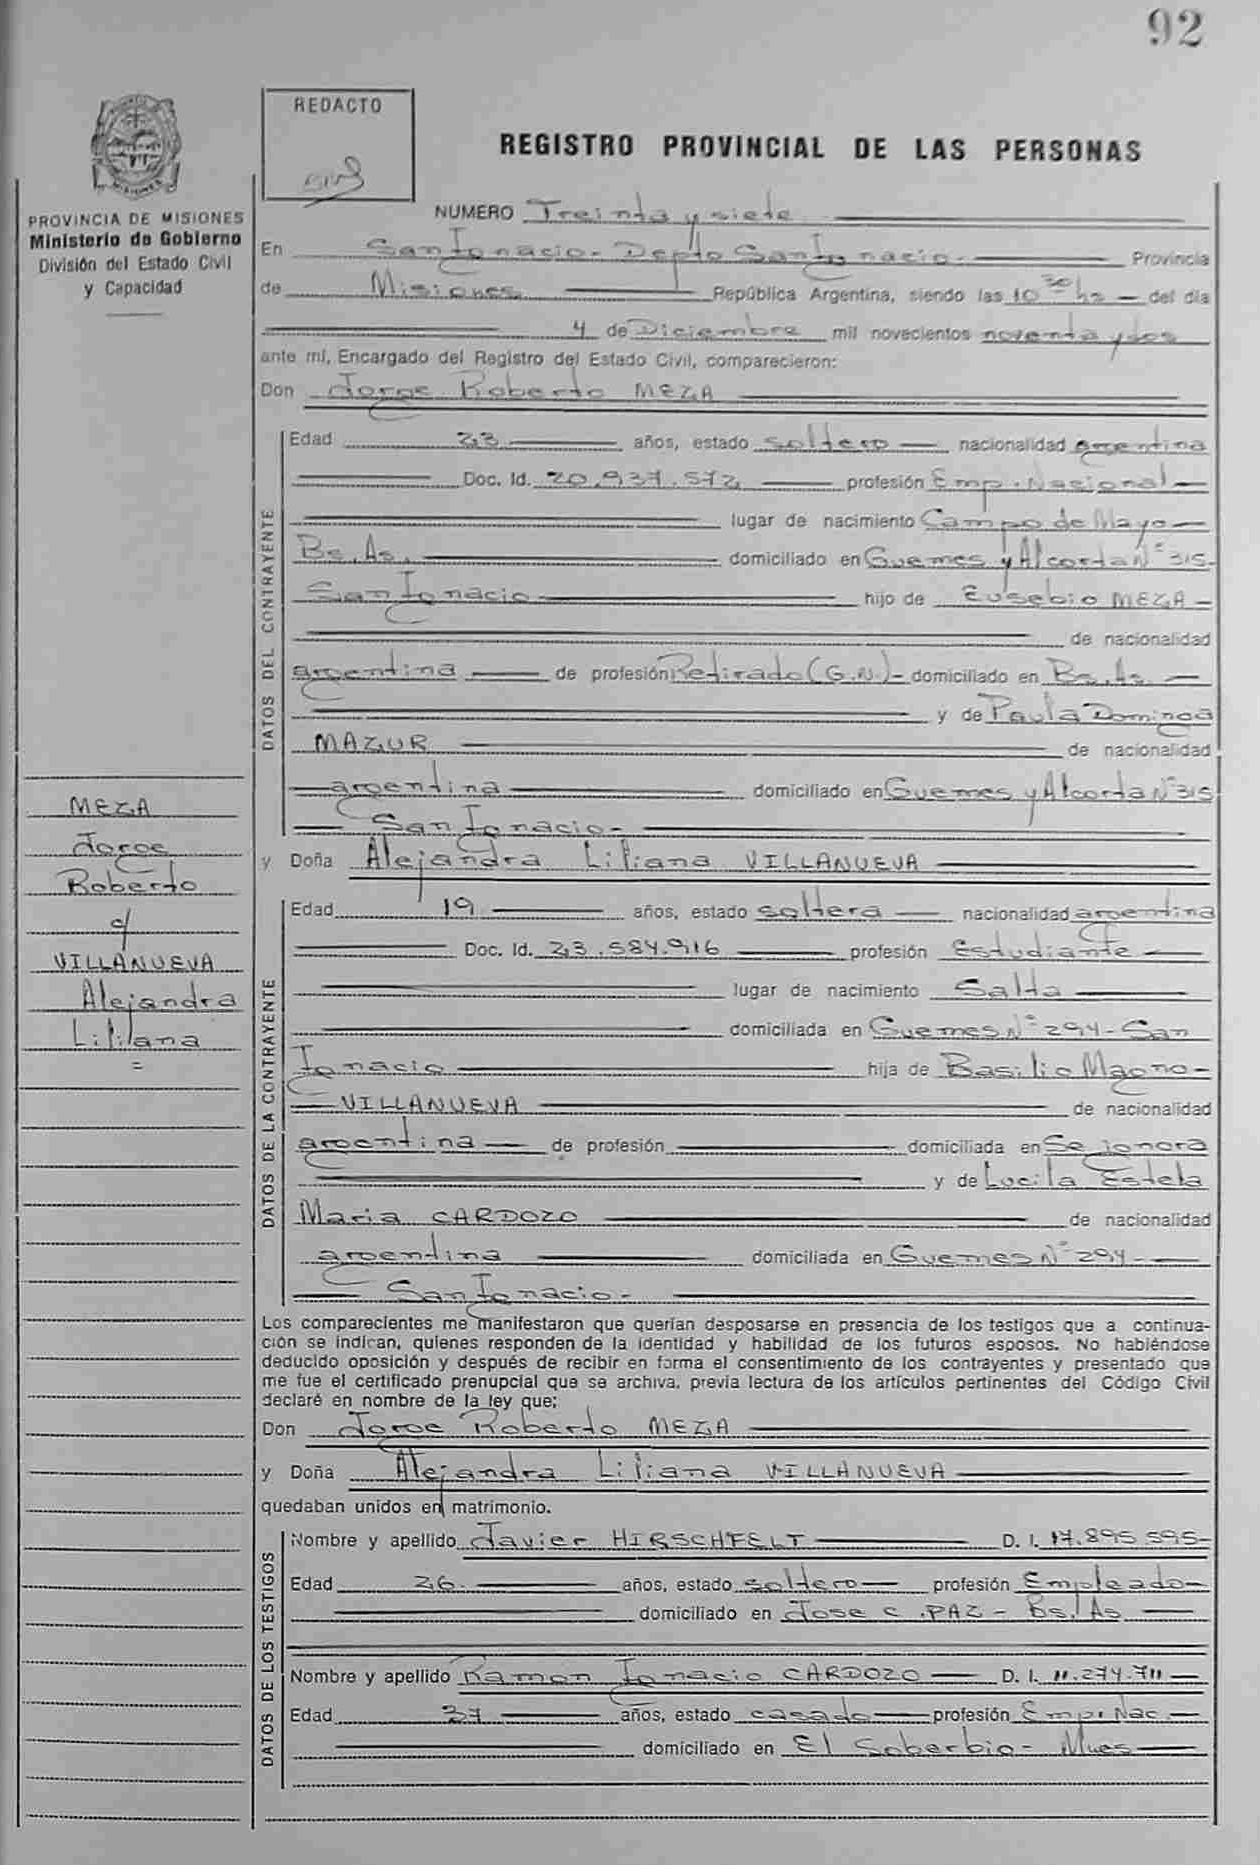 92
REDACTO
REGISTRO PROVINCIAL DE LAS PERSONAS
PROVINCIA DE MISIONES
Ministerio de Gobierno
División del Estado Civil
y Capacidad
NUMERO Treinta y siete
En San Ignacio - Depto San Ignacio - Provincia
de Misiones República Argentina, siendo las 10 30 hs - del día
4 de Diciembre mil novecientos noventa y dos
ante mí, Encargado del Registro del Estado Civil, comparecieron:
Don Jorge Roberto MEZA
DATOS DEL CONTRAYENTE
Edad 23 años, estado soltero nacionalidad argentina
Doc. Id. 20.937.572 profesión Emp. Nacional
lugar de nacimiento Campo de Mayo
Bs. As. domiciliado en Guemes y Alcorta N° 315
San Ignacio hijo de Eusebio MEZA
de nacionalidad
argentina de profesión Retirado (G.N.) - domiciliado en Bs. As.
y de Paula Dominga
MAZUR de nacionalidad
argentina domiciliado en Guemes y Alcorta N° 315
San Ignacio -
y Doña Alejandra Liliana VILLANUEVA
MEZA
Jorge
Roberto
c/
VILLANUEVA
Alejandra
Liliana
=
DATOS DE LA CONTRAYENTE
Edad 19 años, estado soltera nacionalidad argentina
Doc. Id. 23.584.916 profesión Estudiante
lugar de nacimiento Salta
domiciliada en Guemes N° 294 - San
Ignacio hija de Basilio Magno
VILLANUEVA de nacionalidad
argentina de profesión domiciliada en Se ignora
y de Lucila Estela
Maria CARDOZO de nacionalidad
argentina domiciliada en Guemes N° 294 -
San Ignacio -
Los comparecientes me manifestaron que querían desposarse en presencia de los testigos que a continua-
ción se indican, quienes responden de la identidad y habilidad de los futuros esposos. No habiéndose
deducido oposición y después de recibir en forma el consentimiento de los contrayentes y presentado que
me fue el certificado prenupcial que se archiva, previa lectura de los artículos pertinentes del Código Civil
declaré en nombre de la ley que:
Don Jorge Roberto MEZA
y Doña Alejandra Liliana VILLANUEVA
quedaban unidos en matrimonio.
DATOS DE LOS TESTIGOS
Nombre y apellido Javier HIRSCHFELT D. I. 17.895.595-
Edad 26 años, estado soltero profesión Empleado
domiciliado en Jose C. PAZ - Bs. As
Nombre y apellido Ramon Ignacio CARDOZO D. I. 11.274.711
Edad 37 años, estado casado profesión Emp. Nac.
domiciliado en El Soberbio - Mnes